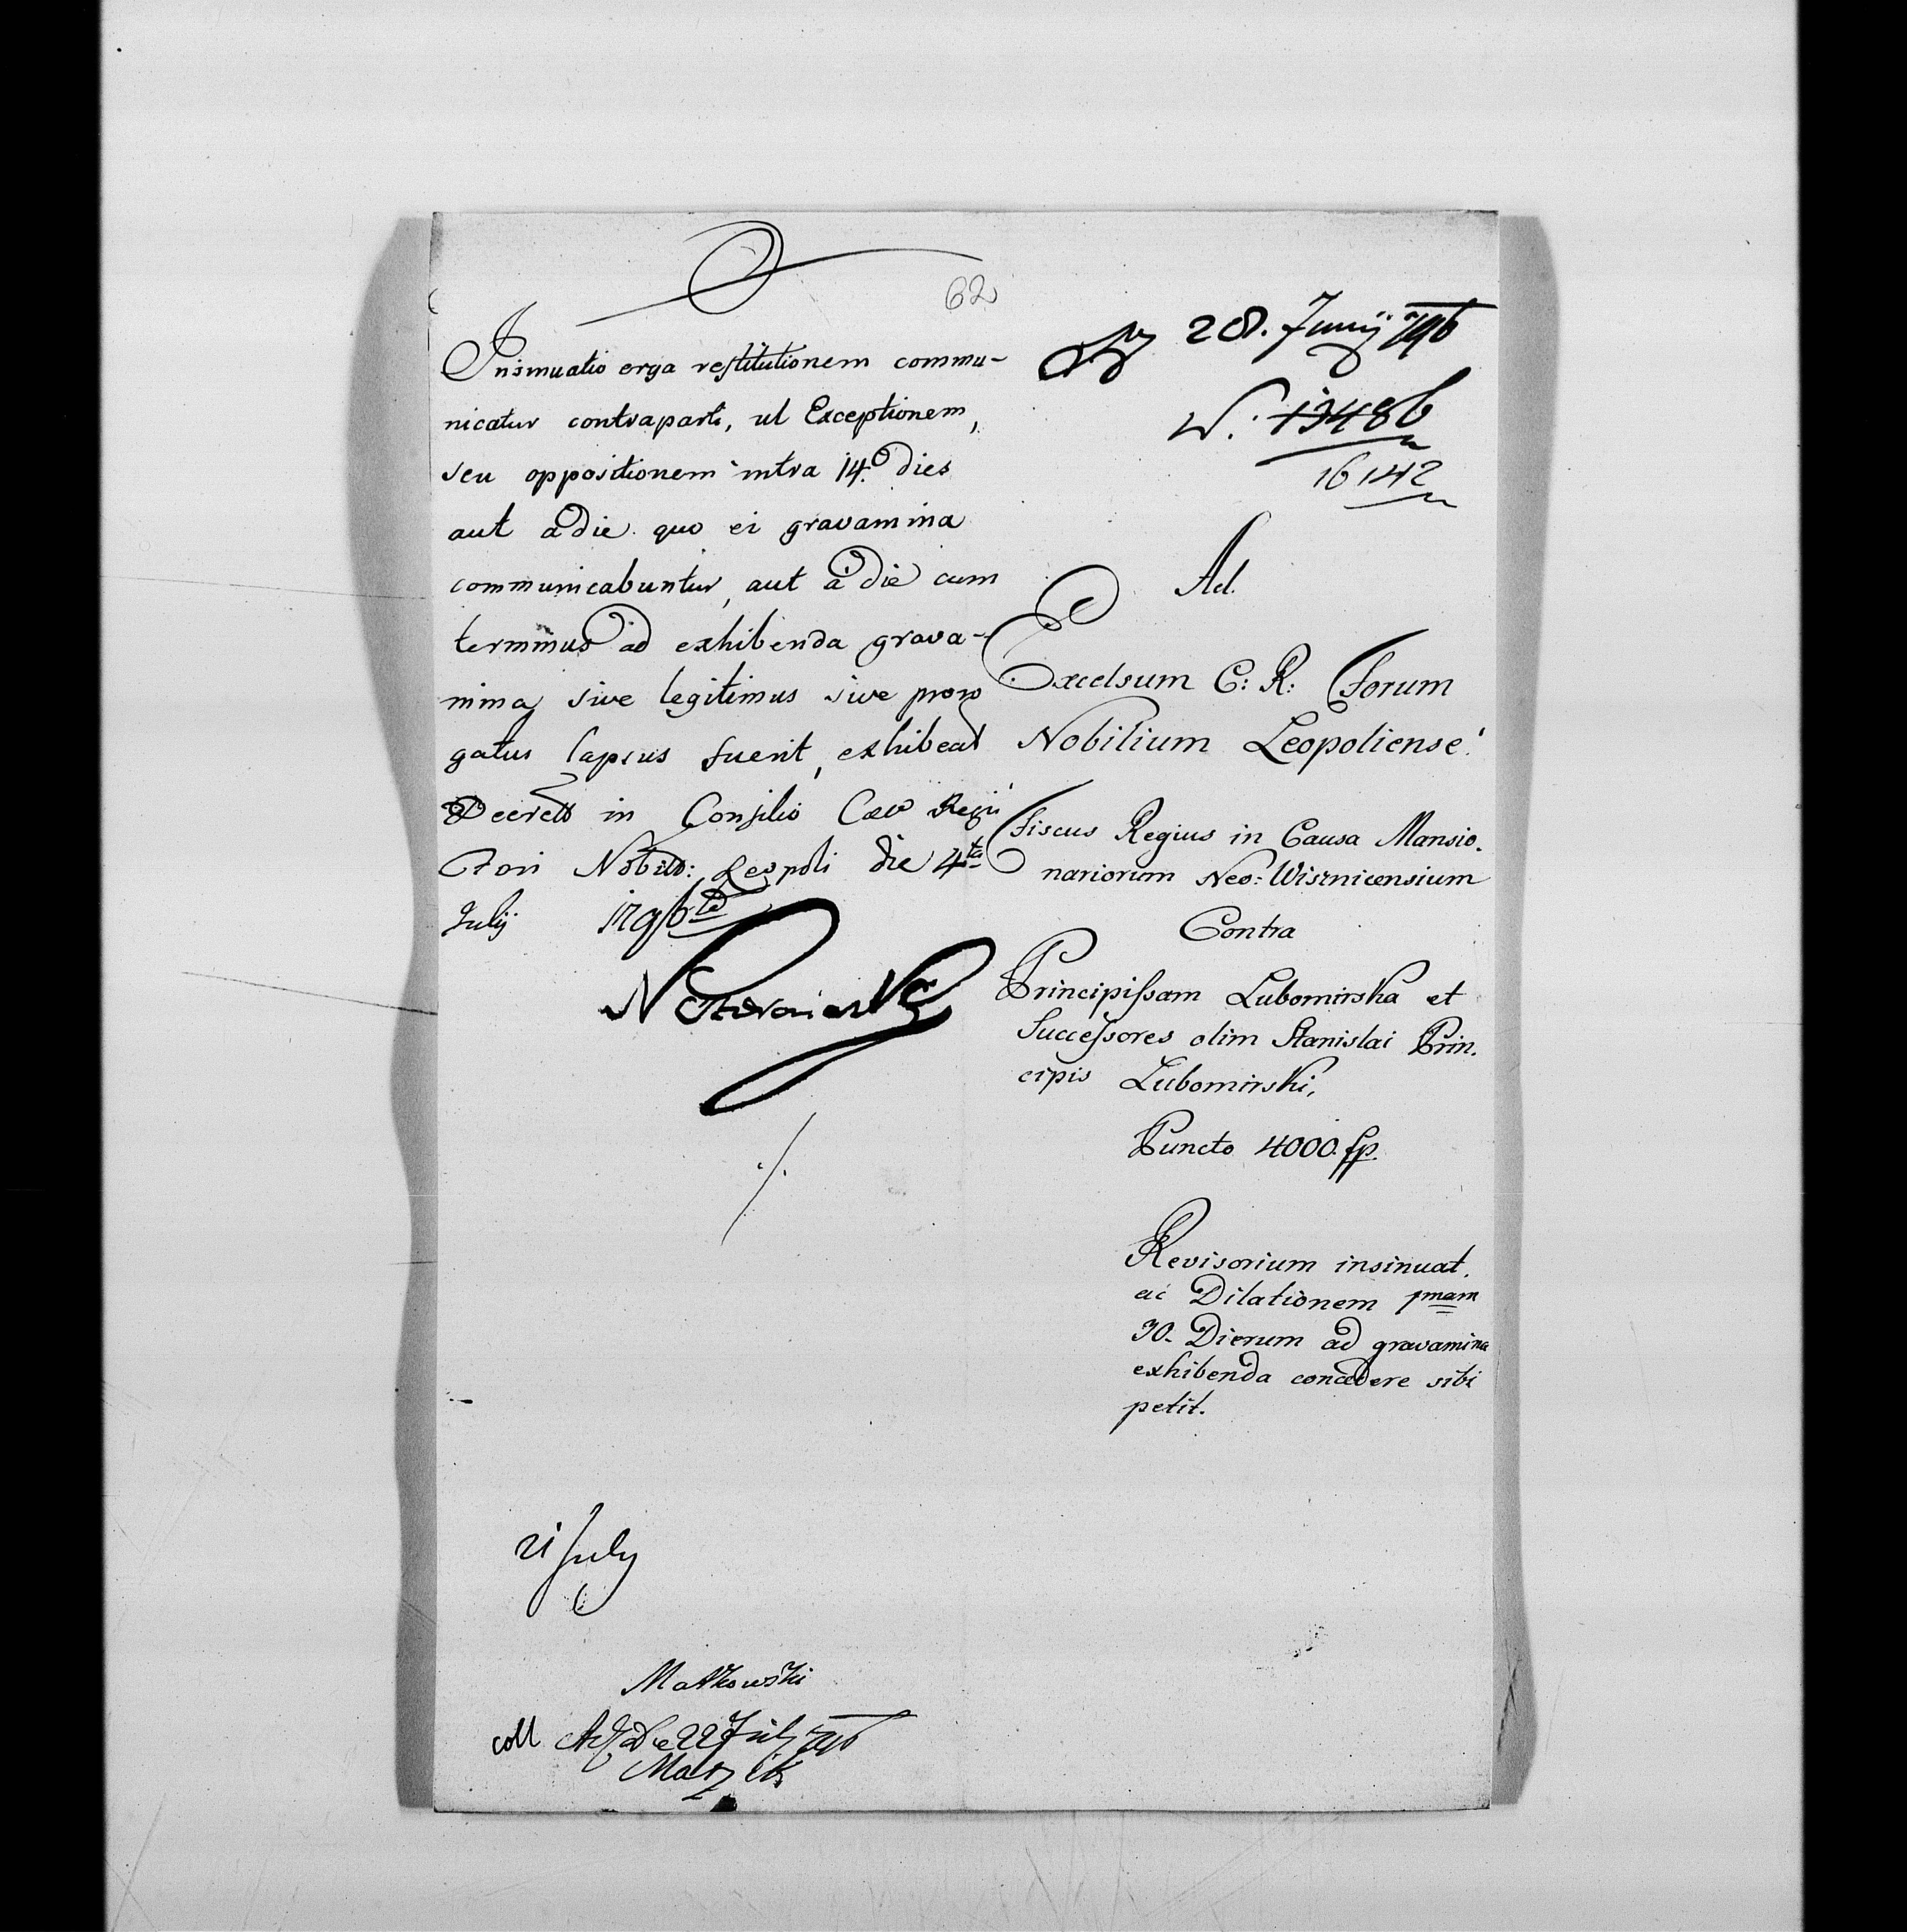 62
Insinuatio erga restitutionem commu-
nicatur contraparti, ut Exceptionem,
seu oppositionem intra 14. dies
aut a die quo ei gravamina
communicabuntur, aut à die cum
terminus ad exhibenda grava-
mina, sive legitimus sive proro
gatus lapsus fuerit, exhibeat
Decreto in Consilio Caeo Regii
Fori Nobil: Leopoli die 4ta
July 1796to
21 July
Matkowski
coll 22 July 796
28. Junij 796
N. 13486
16142
Ad.
Excelsum C: R: Forum
Nobilium Leopoliense!
Fiscus Regius in Causa Mansio.
nariorum Neo: Wisznicensium
Contra
Principissam Lubomirska et
Successores olim Stanislai Prin.
cipis Lubomirski,
Puncto 4000. fp.
Revisorium insinuat,
ac Dilationem 1mam
30. Dierum ad gravamina
exhibenda concedere sibi
petit.